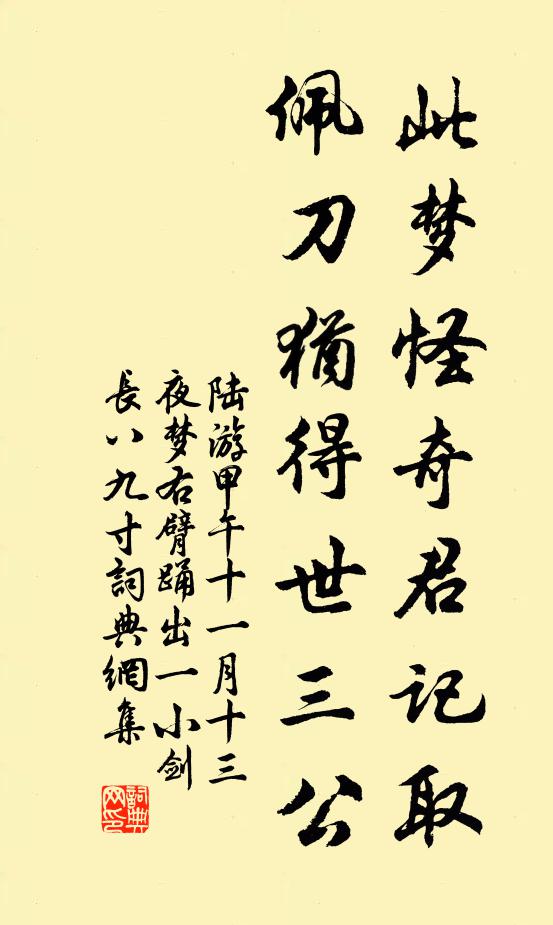 此梦怪奇君记取
佩刀猶得世三公
陆游甲午十一月十三
夜梦右臂踊出一小剑
長八九寸詞典網集
詞典
网印